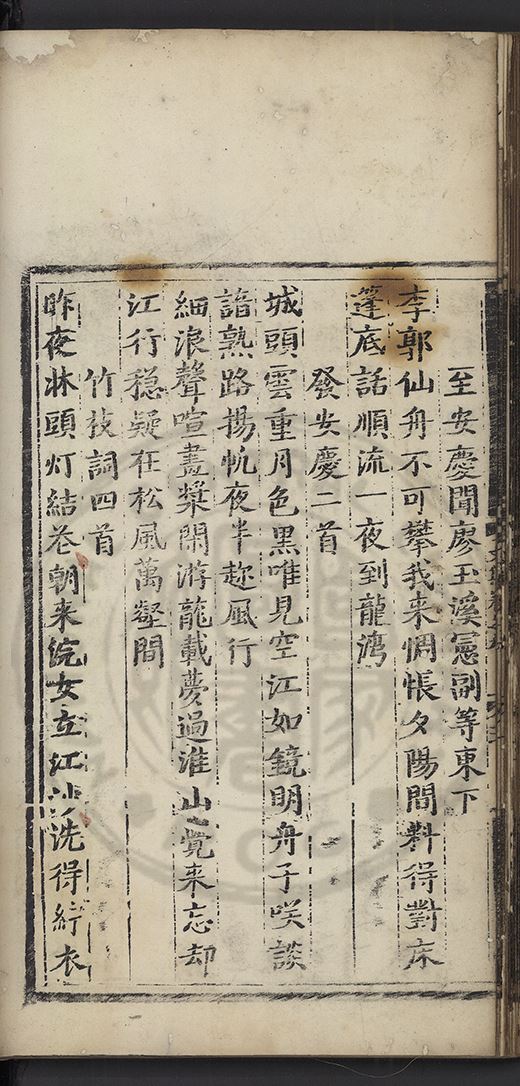 至安慶聞廖玉溪憲副等東下
李郭仙舟不可攀我来惆悵夕陽間料得對床
篷底話順流一夜到龍湾
發安慶二首
城頭雲重月色黒唯見空江如鏡明舟子咲談
諳熟路揚帆夜半趂風行
細浪聲喧畫槳閑游龍載夢過淮山覺来忘却
江行穏疑在松風萬壑間
竹枝詞四首
昨夜牀頭灯結巻朝来浣女立江沙洗得紵衣